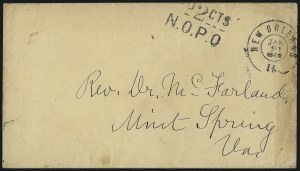 2 CTS
N.O.P.O
NEW ORLEANS
JAN
Rev. Dr. McFarland,
Mint Spring
Va.